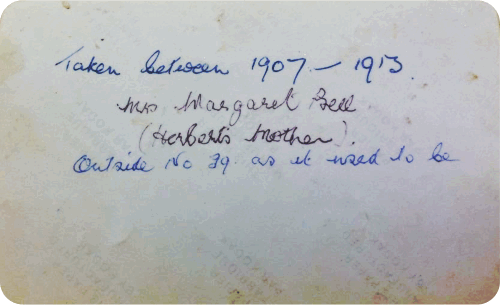 Taken between 1907 – 1913.
Mrs Margaret Bell
(Herberts Mother).
Outside No 39. as it used to be